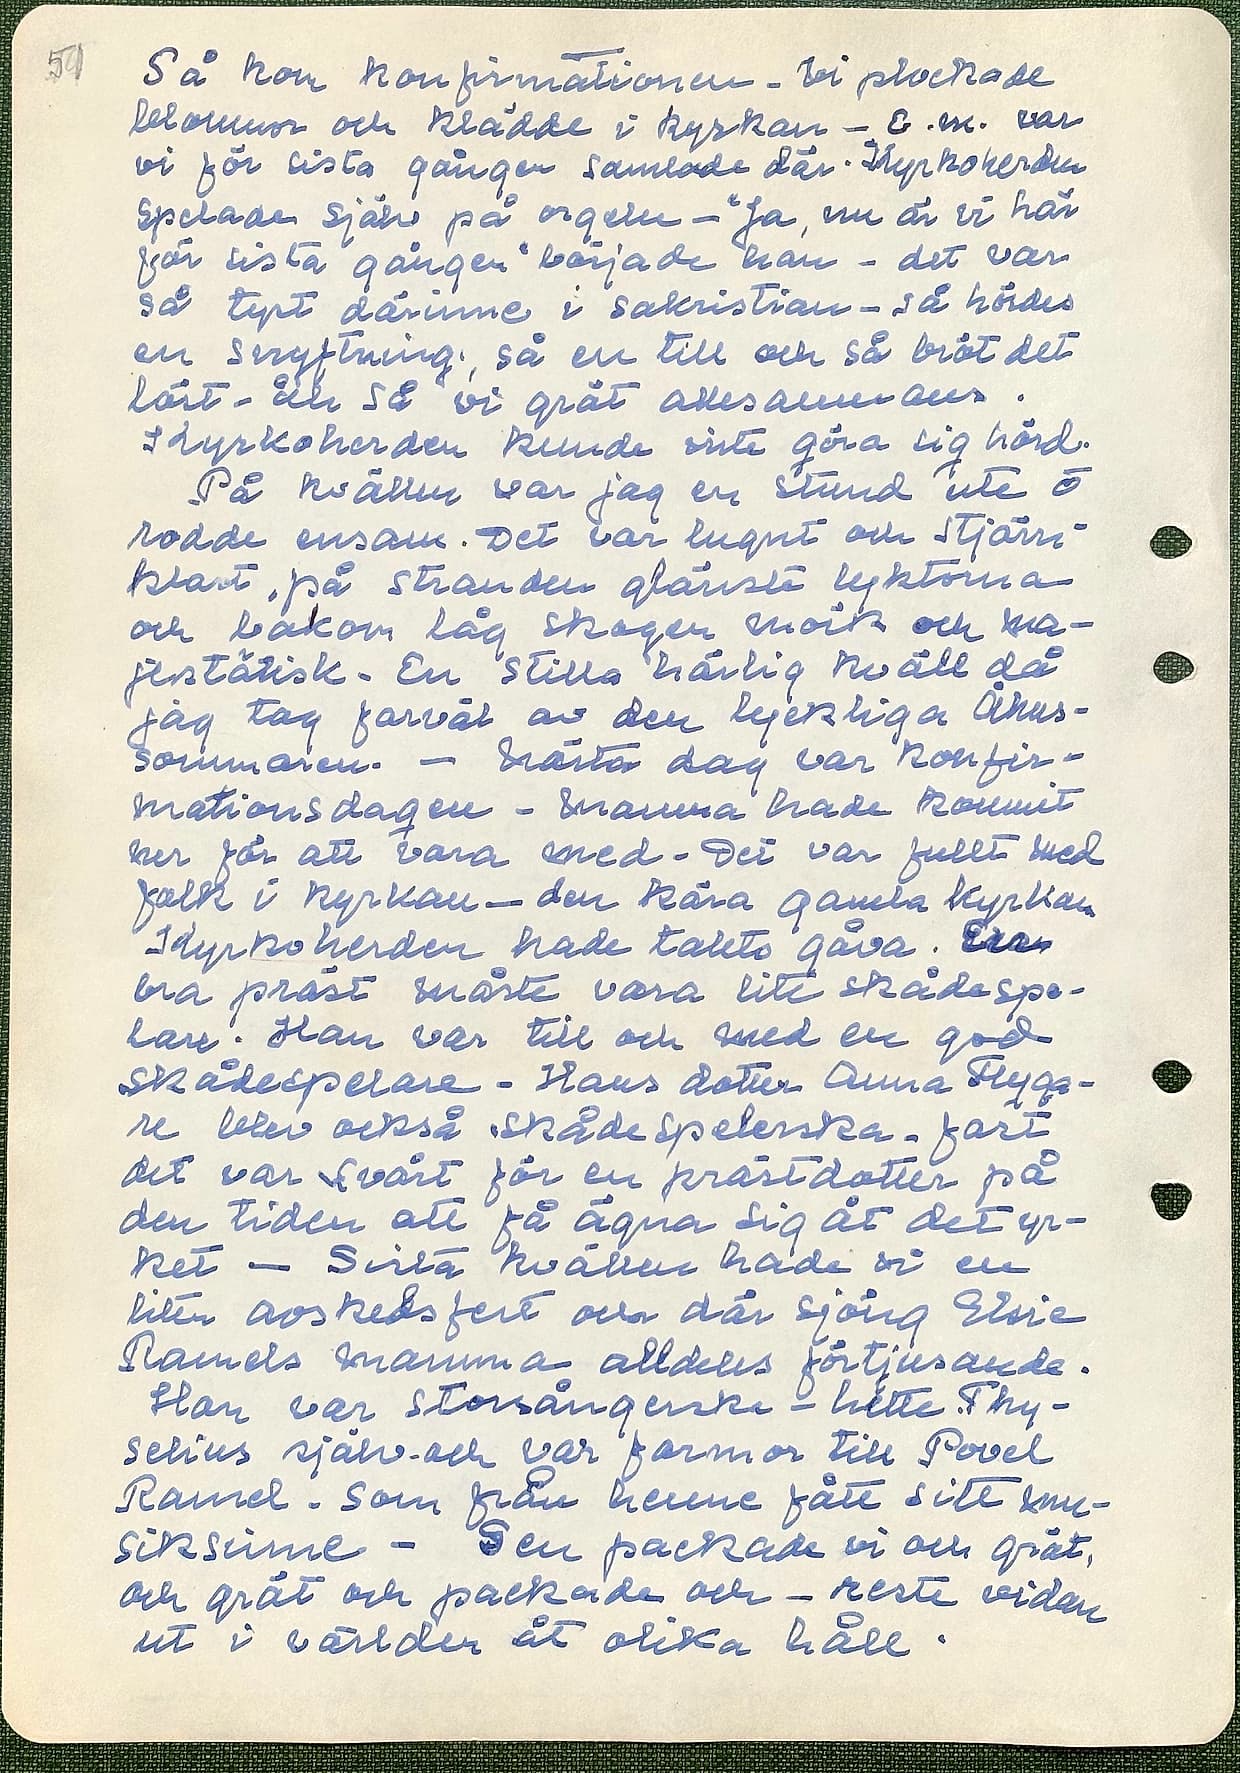 51
Så kom konfirmationen - Vi plockade
blommor och klädde i kyrkan - E.m. var
vi för sista gången samlade där. Kyrkoherden
spelade själv på orgeln - "Ja, nu är vi här
för sista gången" började han - det var
så tyst därinne i sakristian - så hördes
en snyftning, så en till och så bröt det
löst - åh så vi grät allesammans.
Kyrkoherden kunde inte göra sig hörd.
På kvällen var jag en stund ute o
rodde ensam. Det var lugnt och stjärn-
klart, på stranden glänste lyktorna
och bakom låg skogen mörk och ma-
jestätisk - En stilla härlig kväll då
jag tog farväl av den lyckliga Åhus-
sommaren. - Nästa dag var konfir-
mationsdagen - Mamma hade kommit
ner för att vara med - Det var fullt med
folk i kyrkan - den kära gamla kyrkan
Kyrkoherden hade talets gåva. En
bra präst måste vara lite skådespe-
lare. Han var till och med en god
skådespelare - Hans dotter Anna Flyga-
re blev också skådespelerska - fast
det var svårt för en prästdotter på
den tiden att få ägna sig åt det yr-
ket - Sista kvällen hade vi en
liten avskedsfest och där sjöng Elsie
Ramels mamma alldeles förtjusande.
Hon var storsångerska - hette Thy-
selius själv - och var farmor till Povel
Ramel - som från henne fått sitt mu-
siksinne - Sen packade vi och grät,
och grät och packade och - reste vidare
ut i världen åt olika håll.